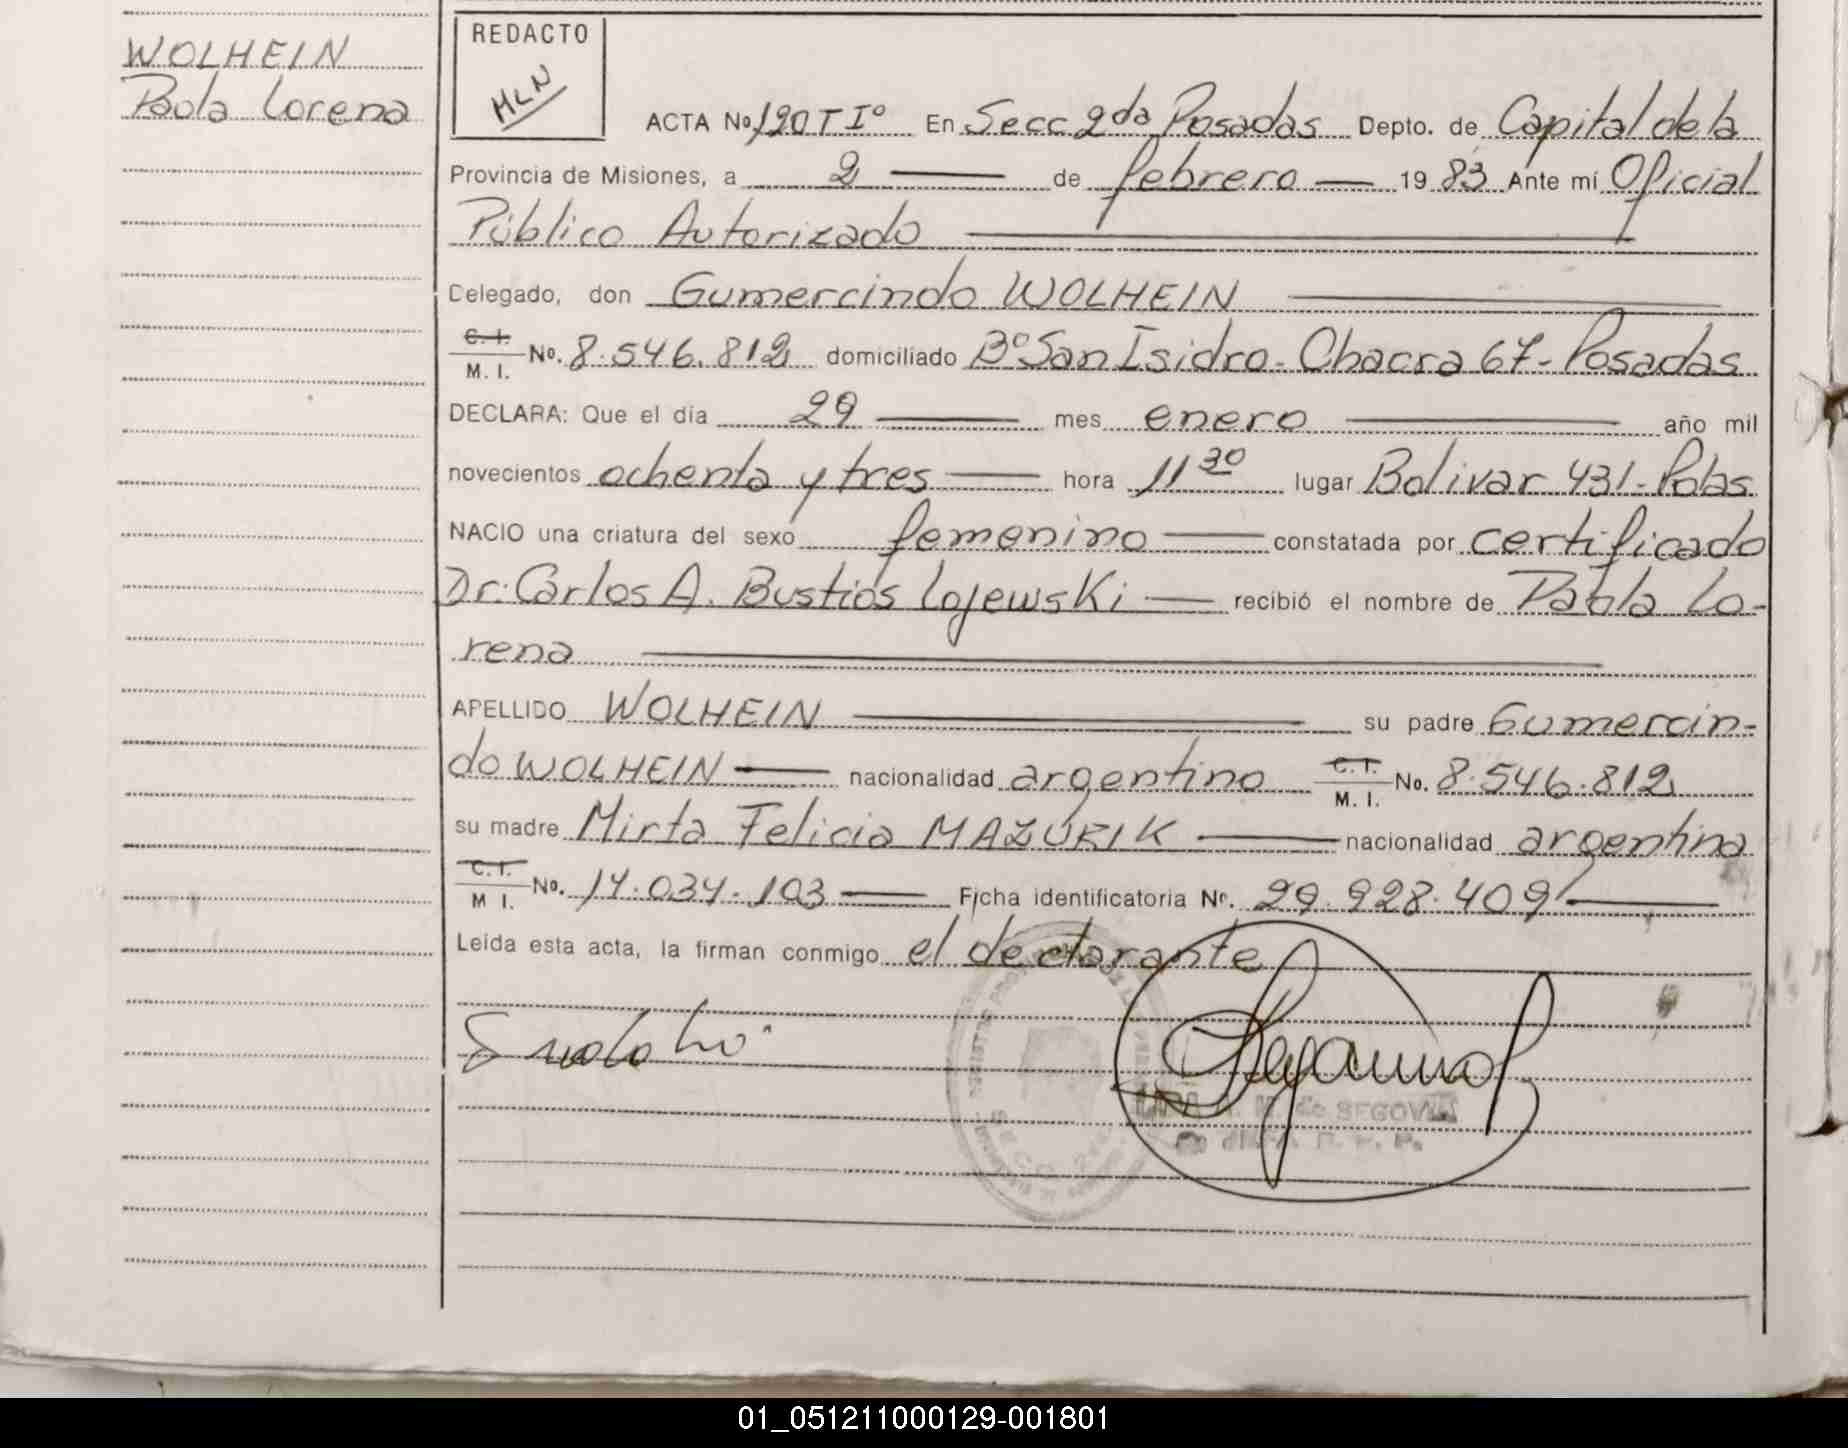 WOLHEIN
Paola Lorena
REDACTO
MLN
ACTA No. 120 T I° En Secc 2da Posadas Depto. de Capital de la
Provincia de Misiones, a 2 — de febrero — 19 83 Ante mí Oficial
Público Autorizado
Delegado, don Gumercindo WOLHEIN
C. I.
M. I. No. 8.546.812 domiciliado B° San Isidro - Chacra 67 - Posadas
DECLARA: Que el día 29 — mes enero — año mil
novecientos ochenta y tres — hora 11 30 lugar Bolivar 431 - Pdas.
NACIO una criatura del sexo femenino — constatada por certificado
Dr. Carlos A. Bustios Lojewski — recibió el nombre de Paola Lo-
rena
APELLIDO WOLHEIN — su padre Gumercin-
do WOLHEIN — nacionalidad argentino C. I. M. I. No. 8.546.812
su madre Mirta Felicia MAZURIK — nacionalidad argentina
C. I.
M I. No. 14.034.103 — Ficha identificatoria Nº. 29.928.409 —
Leída esta acta, la firman conmigo el declarante
de SEGOVIA
01_051211000129-001801